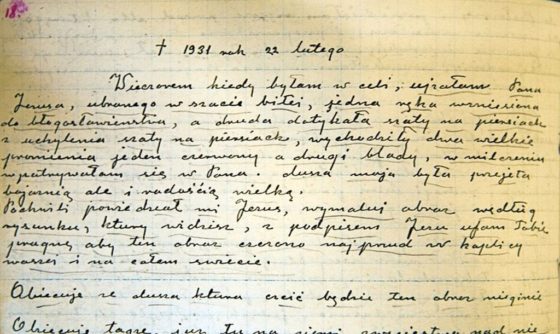 18.
† 1931 rok 22 lutego
Wieczorem kiedy byłam w celi, ujrzałam Pana
Jezusa, ubranego w szacie białej, jedna ręka wzniesiona
do błogosławieństwa, a druga dotykała szaty na piersiach
z uchylenia szaty na piersiach, wychodziły dwa wielkie
promienia jeden czerwony a drugi blady, w milczeniu
wpatrywałam się w Pana. dusza moja była przejęta
bojaznią ale i radością wielką.
Pochwili powiedział mi Jezus, wymaluj obraz według
rysunku, który widzisz, z podpisem Jezu ufam Tobie
pragnę aby ten obraz czczono najprzud w kaplicy
waszej i na całem świecie.
Obiecuje że dusza która czcić będzie ten obraz nie zginie
Obiecuję także, już tu na ziemi, zwycięstwo nad nie